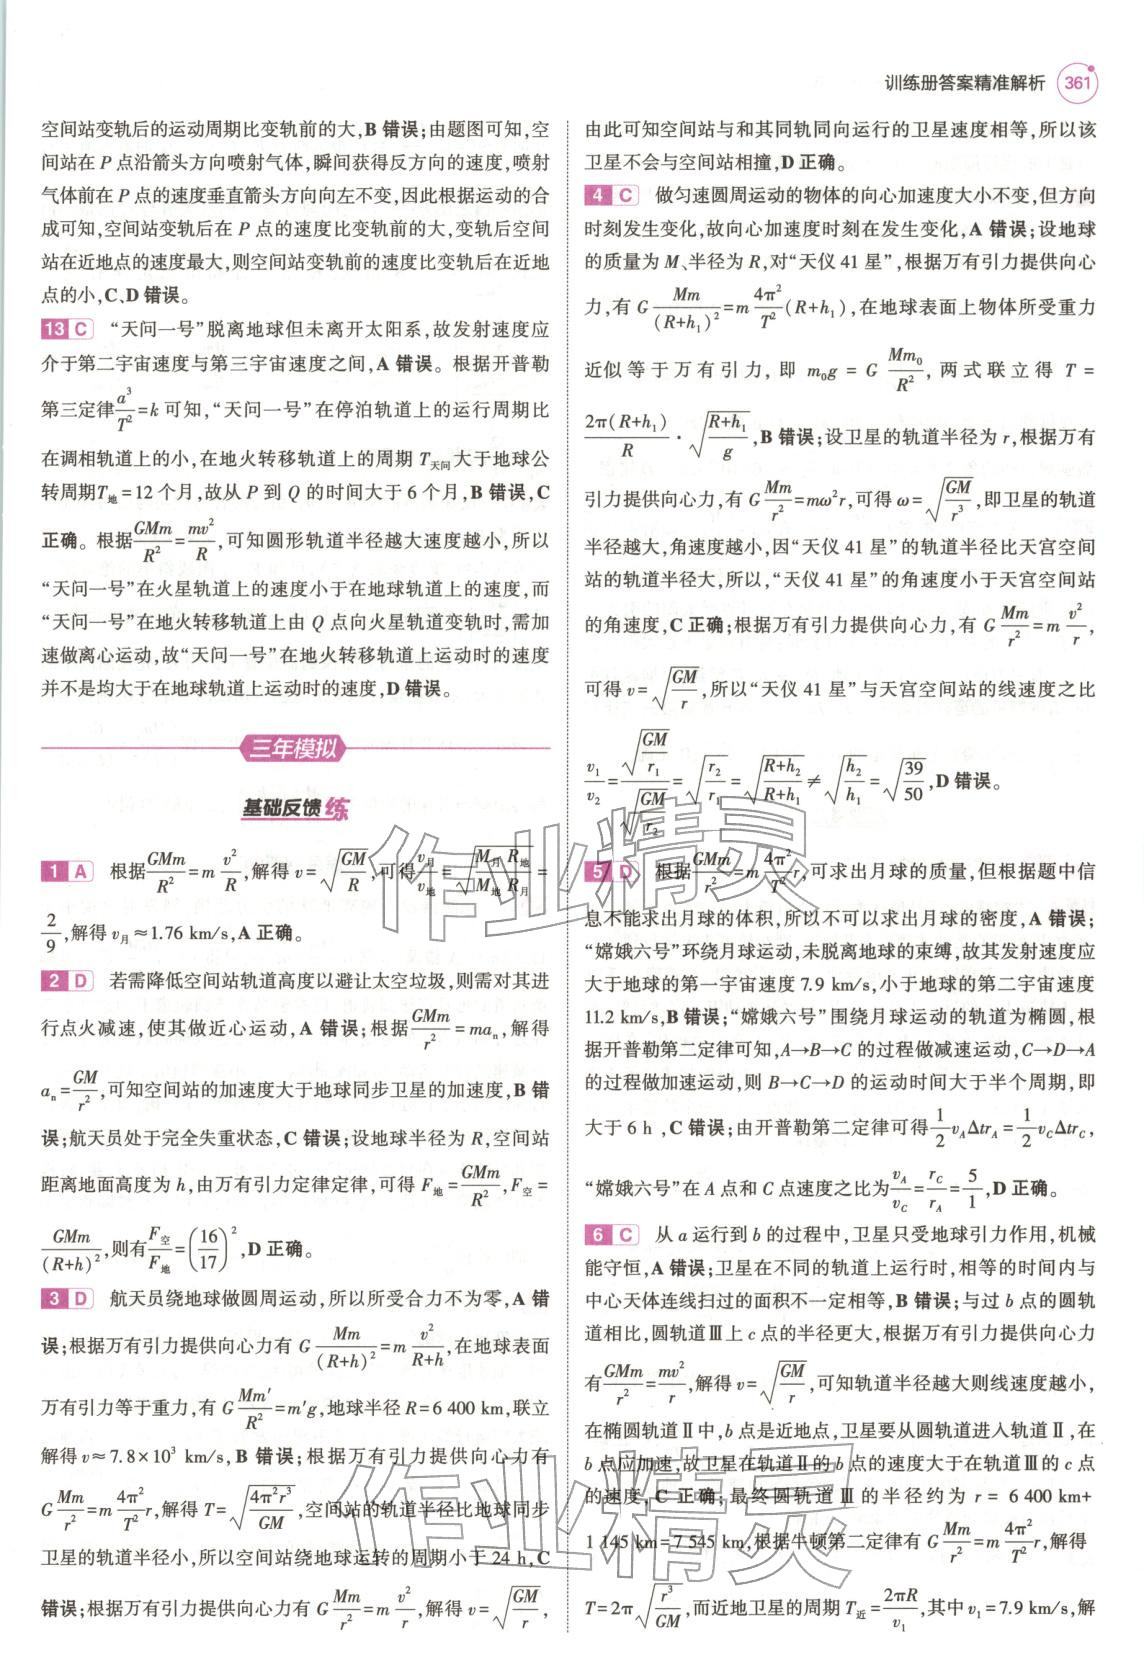 训练册答案精准解析 361
空间站变轨后的运动周期比变轨前的大,B 错误;由题图可知,空
间站在 P 点沿箭头方向喷射气体,瞬间获得反方向的速度,喷射
气体前在 P 点的速度垂直箭头方向向左不变,因此根据运动的合
成可知,空间站变轨后在 P 点的速度比变轨前的大,变轨后空间
站在近地点的速度最大,则空间站变轨前的速度比变轨后在近地
点的小,C、D 错误。
13 C “天问一号”脱离地球但未离开太阳系,故发射速度应
介于第二宇宙速度与第三宇宙速度之间,A 错误。根据开普勒
第三定律a³/T²=k 可知,“天问一号”在停泊轨道上的运行周期比
在调相轨道上的小,在地火转移轨道上的周期 T天问大于地球公
转周期T地=12 个月,故从 P 到 Q 的时间大于 6 个月,B 错误,C
正确。根据GMm/R²=mv²/R,可知圆形轨道半径越大速度越小,所以
“天问一号”在火星轨道上的速度小于在地球轨道上的速度,而
“天问一号”在地火转移轨道上由 Q 点向火星轨道变轨时,需加
速做离心运动,故“天问一号”在地火转移轨道上运动时的速度
并不是均大于在地球轨道上运动时的速度,D 错误。
三年模拟
基础反馈练
1 A 根据GMm/R²=m v²/R,解得 v=√(GM/R),可得v月/v地=√(M月R地/M地R月)=
2/9,解得 v月≈1.76 km/s,A 正确。
2 D 若需降低空间站轨道高度以避让太空垃圾,则需对其进
行点火减速,使其做近心运动,A 错误;根据GMm/r²=maₙ,解得
aₙ=GM/r²,可知空间站的加速度大于地球同步卫星的加速度,B 错
误;航天员处于完全失重状态,C 错误;设地球半径为 R,空间站
距离地面高度为 h,由万有引力定律定律,可得 F地=GMm/R²,F空=
GMm/(R+h)²,则有F空/F地=(16/17)²,D 正确。
3 D 航天员绕地球做圆周运动,所以所受合力不为零,A 错
误;根据万有引力提供向心力有 G Mm/(R+h)²=m v²/(R+h),在地球表面
万有引力等于重力,有 G Mm′/R²=m′g,地球半径 R=6 400 km,联立
解得 v≈7.8×10³ km/s,B 错误;根据万有引力提供向心力有
G Mm/r²=m 4π²/T² r,解得 T=√(4π²r³/GM),空间站的轨道半径比地球同步
卫星的轨道半径小,所以空间站绕地球运转的周期小于 24 h,C
错误;根据万有引力提供向心力有 G Mm/r²=m v²/r,解得 v=√(GM/r),
由此可知空间站与和其同轨同向运行的卫星速度相等,所以该
卫星不会与空间站相撞,D 正确。
4 C 做匀速圆周运动的物体的向心加速度大小不变,但方向
时刻发生变化,故向心加速度时刻在发生变化,A 错误;设地球
的质量为 M、半径为 R,对“天仪 41 星”,根据万有引力提供向心
力,有 G Mm/(R+h₁)²=m 4π²/T² (R+h₁),在地球表面上物体所受重力
近似等于万有引力,即 m₀g=G Mm₀/R²,两式联立得 T=
2π(R+h₁)/R · √((R+h₁)/g),B 错误;设卫星的轨道半径为 r,根据万有
引力提供向心力,有 G Mm/r²=mω²r,可得 ω=√(GM/r³),即卫星的轨道
半径越大,角速度越小,因“天仪 41 星”的轨道半径比天宫空间
站的轨道半径大,所以,“天仪 41 星”的角速度小于天宫空间站
的角速度,C 正确;根据万有引力提供向心力,有 G Mm/r²=m v²/r,
可得 v=√(GM/r),所以“天仪 41 星”与天宫空间站的线速度之比
v₁/v₂=√(GM/r₁)/√(GM/r₂)=√(r₂/r₁)=√((R+h₂)/(R+h₁))≠√(h₂/h₁)=√(39/50),D 错误。
5 D 根据GMm/r²=m 4π²/T² r,可求出月球的质量,但根据题中信
息不能求出月球的体积,所以不可以求出月球的密度,A 错误;
“嫦娥六号”环绕月球运动,未脱离地球的束缚,故其发射速度应
大于地球的第一宇宙速度 7.9 km/s,小于地球的第二宇宙速度
11.2 km/s,B 错误;“嫦娥六号”围绕月球运动的轨道为椭圆,根
据开普勒第二定律可知,A→B→C 的过程做减速运动,C→D→A
的过程做加速运动,则 B→C→D 的运动时间大于半个周期,即
大于 6 h,C 错误;由开普勒第二定律可得1/2 v_AΔtr_A=1/2 v_CΔtr_C,
“嫦娥六号”在 A 点和 C 点速度之比为v_A/v_C=r_C/r_A=5/1,D 正确。
6 C 从 a 运行到 b 的过程中,卫星只受地球引力作用,机械
能守恒,A 错误;卫星在不同的轨道上运行时,相等的时间内与
中心天体连线扫过的面积不一定相等,B 错误;与过 b 点的圆轨
道相比,圆轨道Ⅲ上 c 点的半径更大,根据万有引力提供向心力
有GMm/r²=mv²/r,解得 v=√(GM/r),可知轨道半径越大则线速度越小,
在椭圆轨道Ⅱ中,b 点是近地点,卫星要从圆轨道进入轨道Ⅱ,在
b 点应加速,故卫星在轨道Ⅱ的 b 点的速度大于在轨道Ⅲ的 c 点
的速度,C 正确;最终圆轨道Ⅲ的半径约为 r=6 400 km+
1 145 km=7 545 km,根据牛顿第二定律有 G Mm/r²=m 4π²/T² r,解得
T=2π√(r³/GM),而近地卫星的周期 T近=2πR/v₁,其中 v₁=7.9 km/s,解
作业精灵
作业精灵